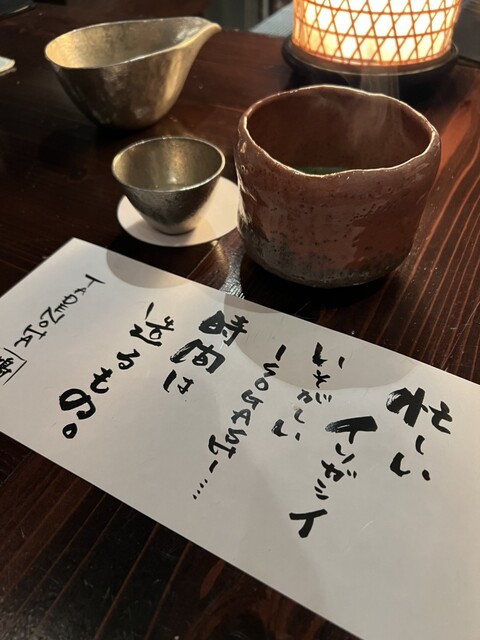 忙しい
イソガシイ
いそがしい
ISOGASHI……
時間は
造るもの。